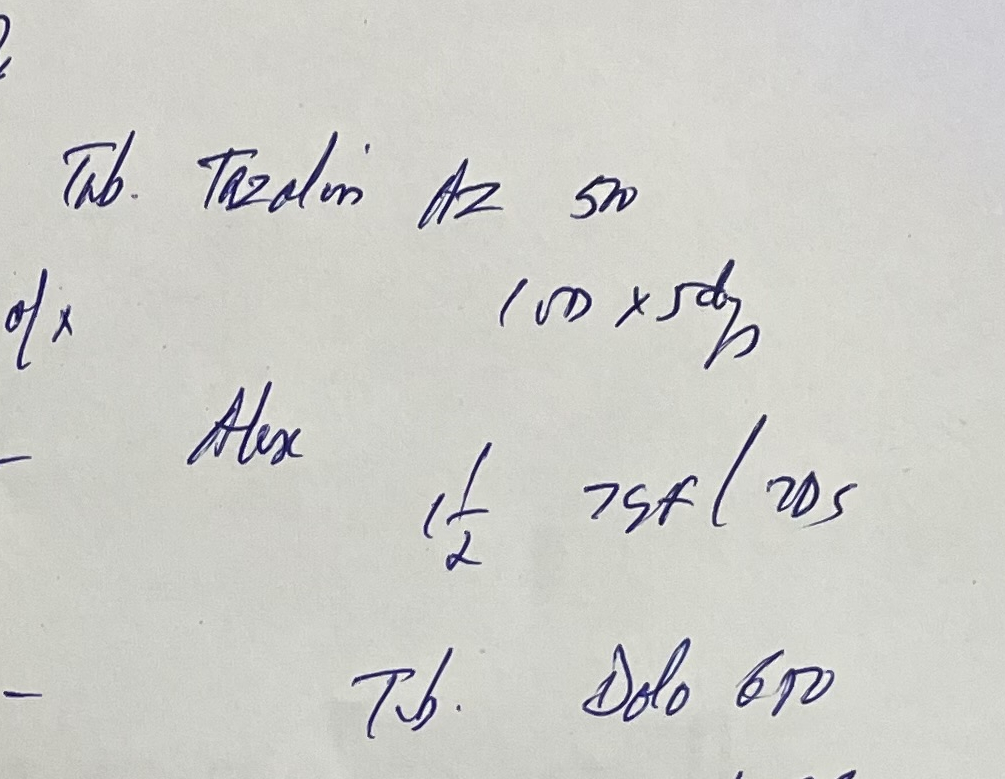 Tab. Tazalin AZ 500
o/x 1 OD x 5 days
Alex
1 1/2 tsf / TDS
Tab. Dolo 650